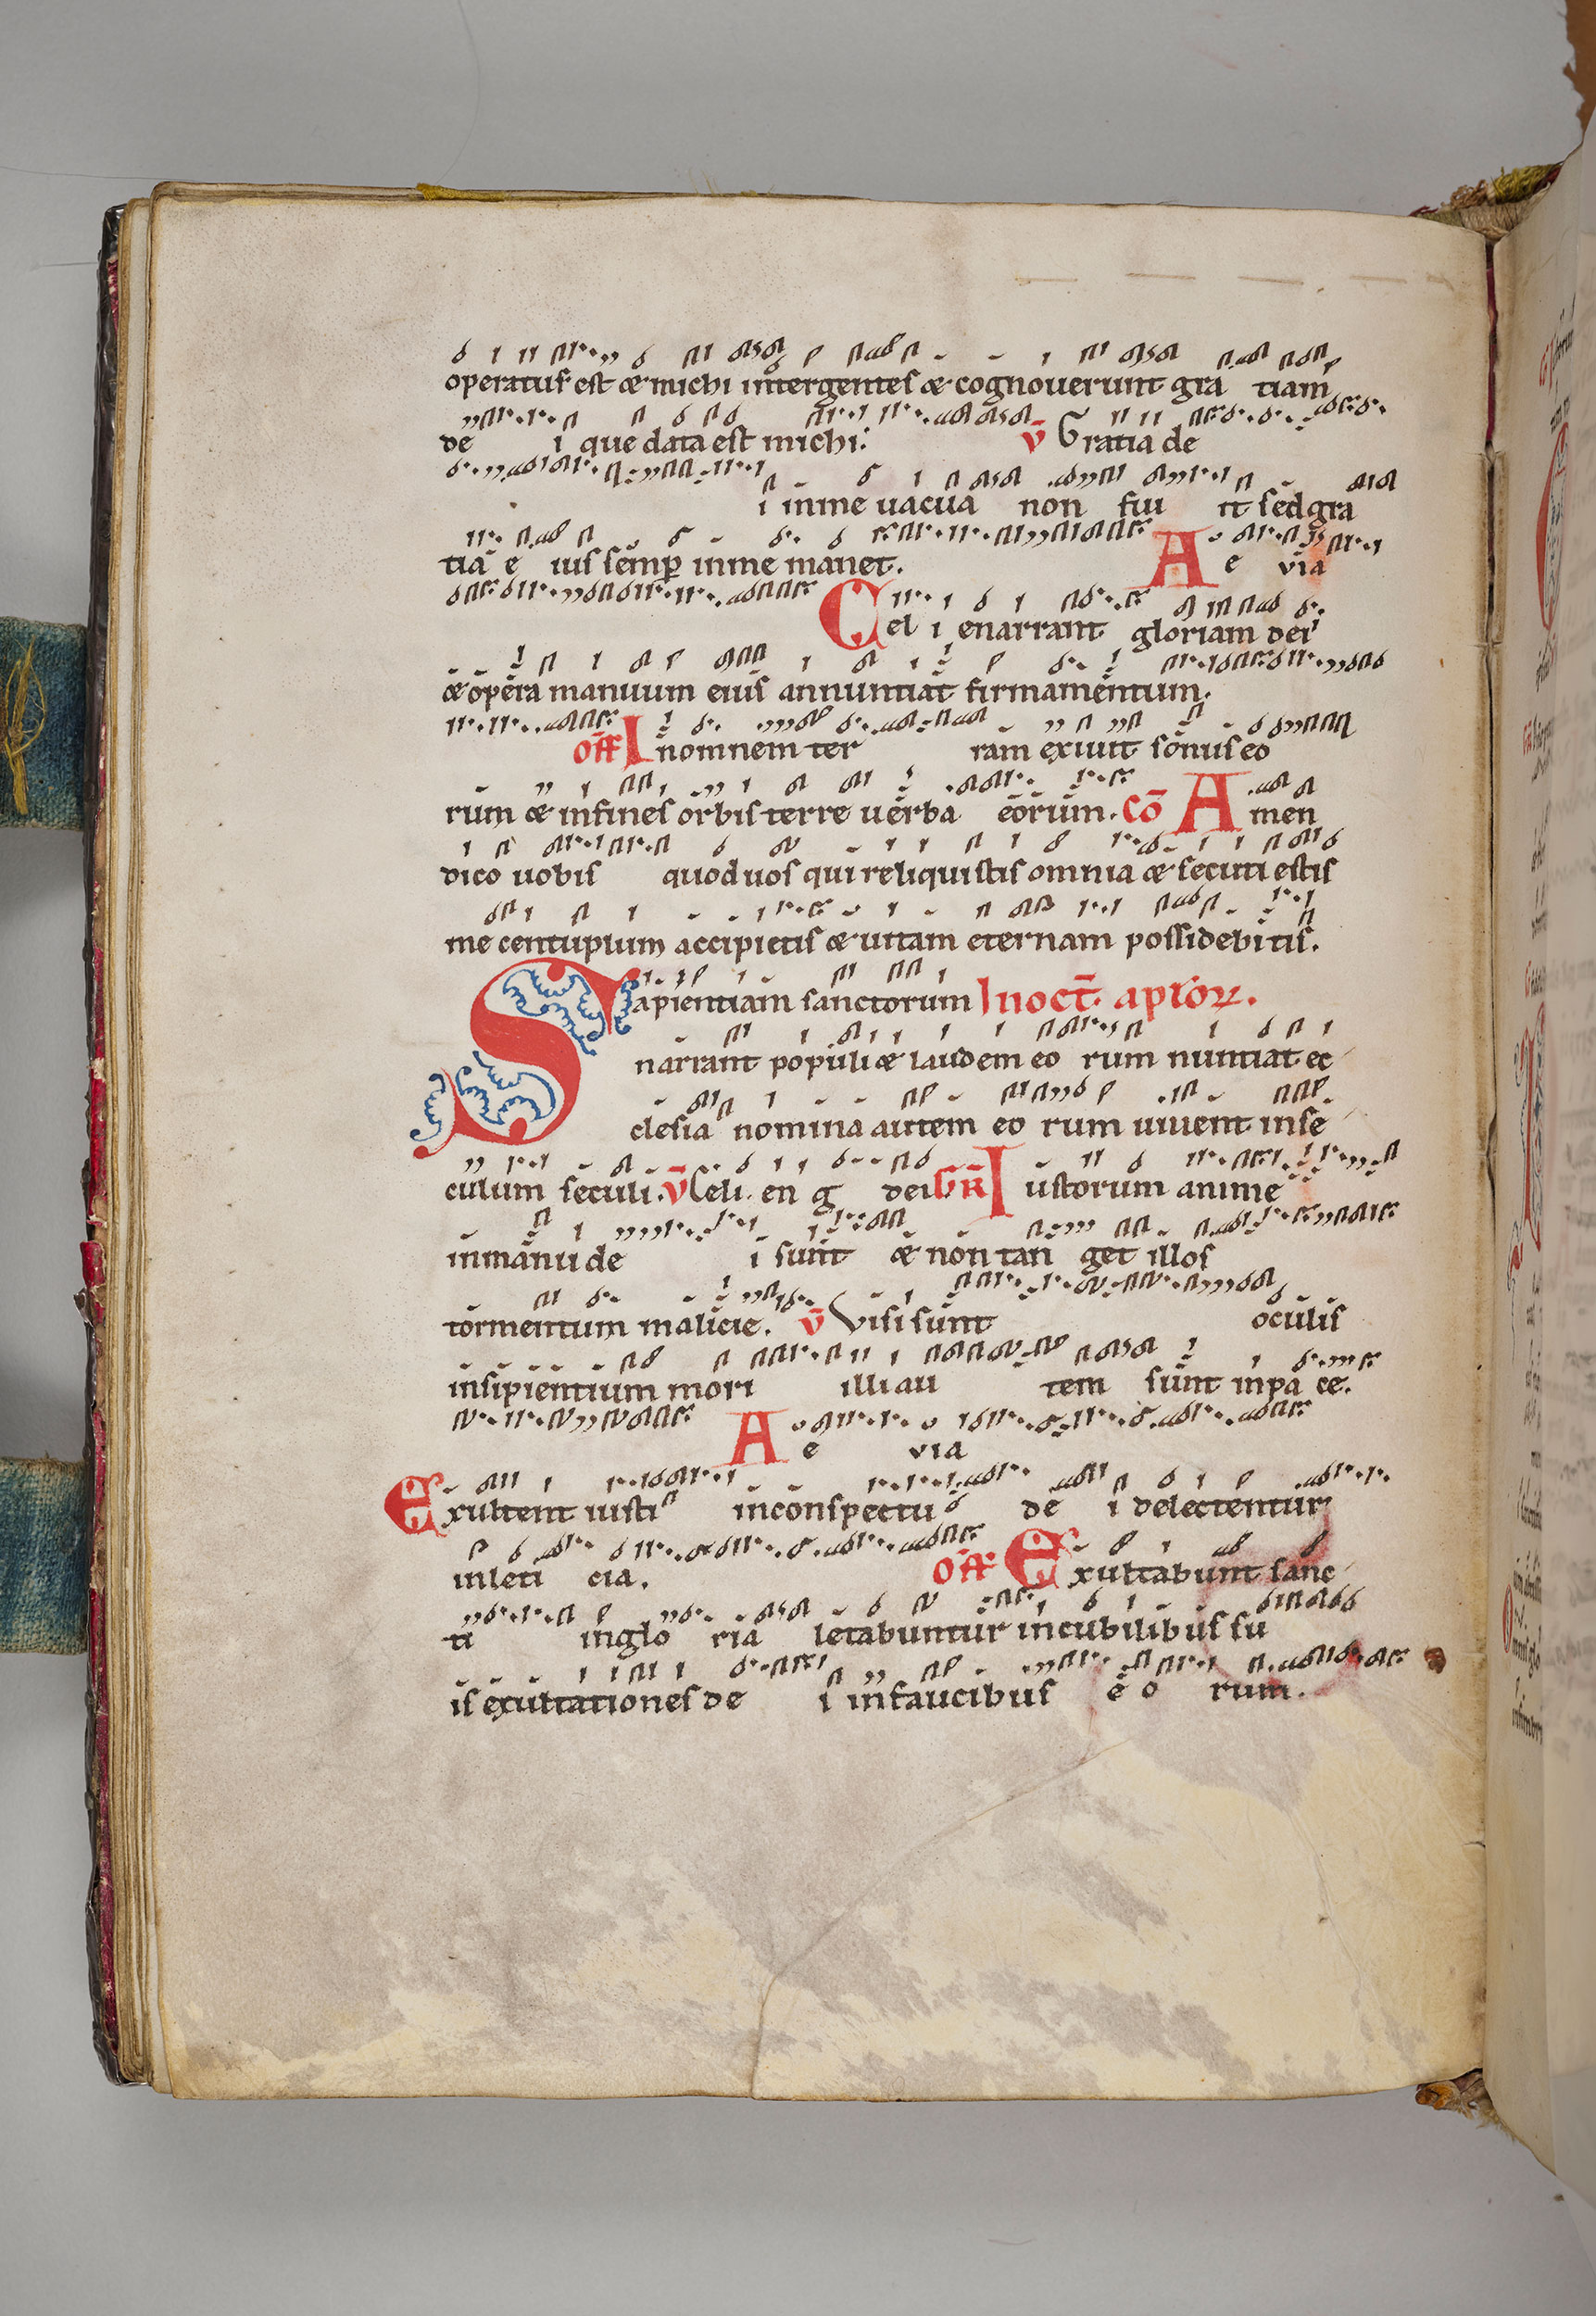 operatuſ eſt æ michi intergenteſ æ cognouerunt gra tiam
de i que data eſt michi. v̄ Gratia de
i inme uacua non fui it ſed gra
tia e iuſ ſemꝑ inme manet. A e via
Cel i enarrant gloriam dei
æ opera manuum eiuſ annuntiat firmamentum.
Off In omnem ter ram exiuit ſonuſ eo
rum æ infineſ orbiſ terre uerba eorum. Cō Amen
dico uobiſ quod uoſ qui reliquiſtiſ omnia æ ſecuti eſtiſ
me centuplum accipietiſ æ uitam eternam poſſidebitiſ.
Sapientiam ſanctorum In oct̄. aploꝝ.
narrant populi æ laudem eo rum nuntiat ec
cleſia nomina autem eo rum uiuent inſe
culum ſeculi. v̄ Celi. en g dei GR̄ Iuſtorum anime
inmanu de i ſunt æ non tan get illoſ
tormentum malicie. v̄ Viſi ſunt oculiſ
inſipientium mori illi au tem ſunt inpa ce.
A e via
Exultent iuſti inconſpectu de i delectentur
inleti cia. Off Exultabunt ſanc
ti inglo ria letabuntur incubilibuſ ſu
iſ exultationeſ de i infaucibuſ e o rum.